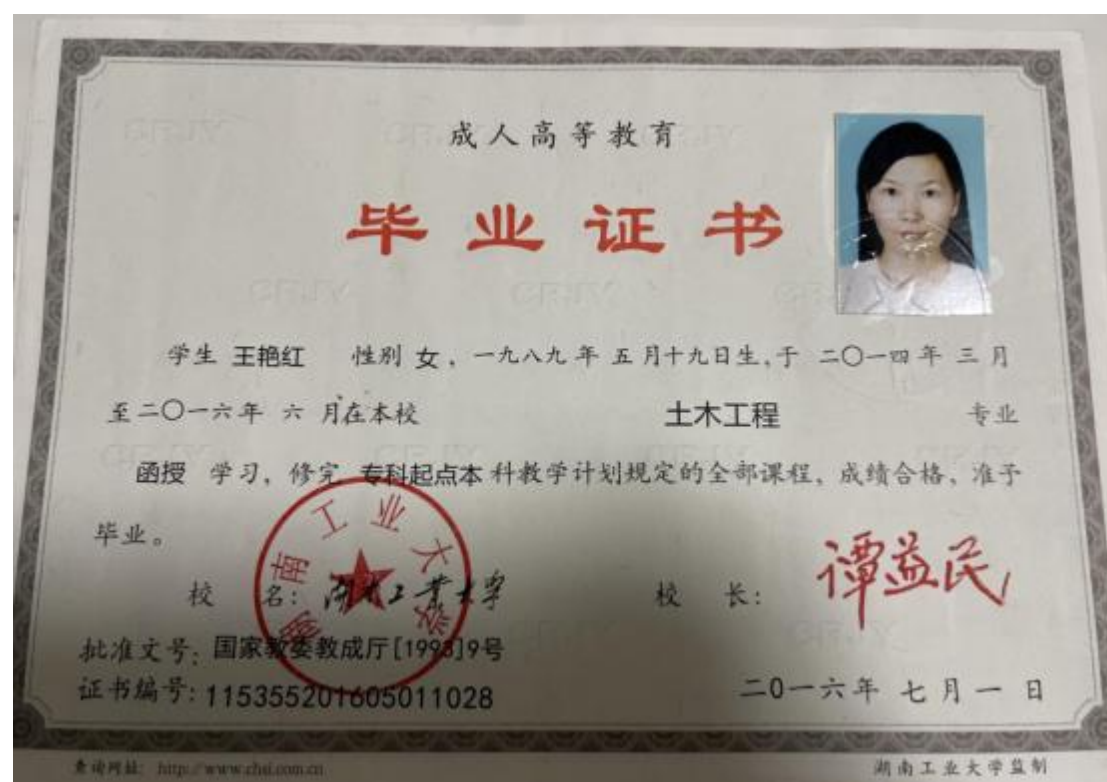 成人高等教育
毕业证书
学生 王艳红 性别 女，一九八九年 五 月十九日生,于 二〇一四年 三 月
至二〇一六年 六 月在本校 土木工程 专业
函授 学习，修完 专科起点本 科教学计划规定的全部课程，成绩合格，准予
毕业。
湖南工业大学
校 名: 湖南工业大学 校 长: 谭益民
批准文号: 国家教委教成厅[1993]9号
证书编号: 115355201605011028 二0一六年 七月一 日
查询网址: http://www.chsi.com.cn 湖南工业大学监制